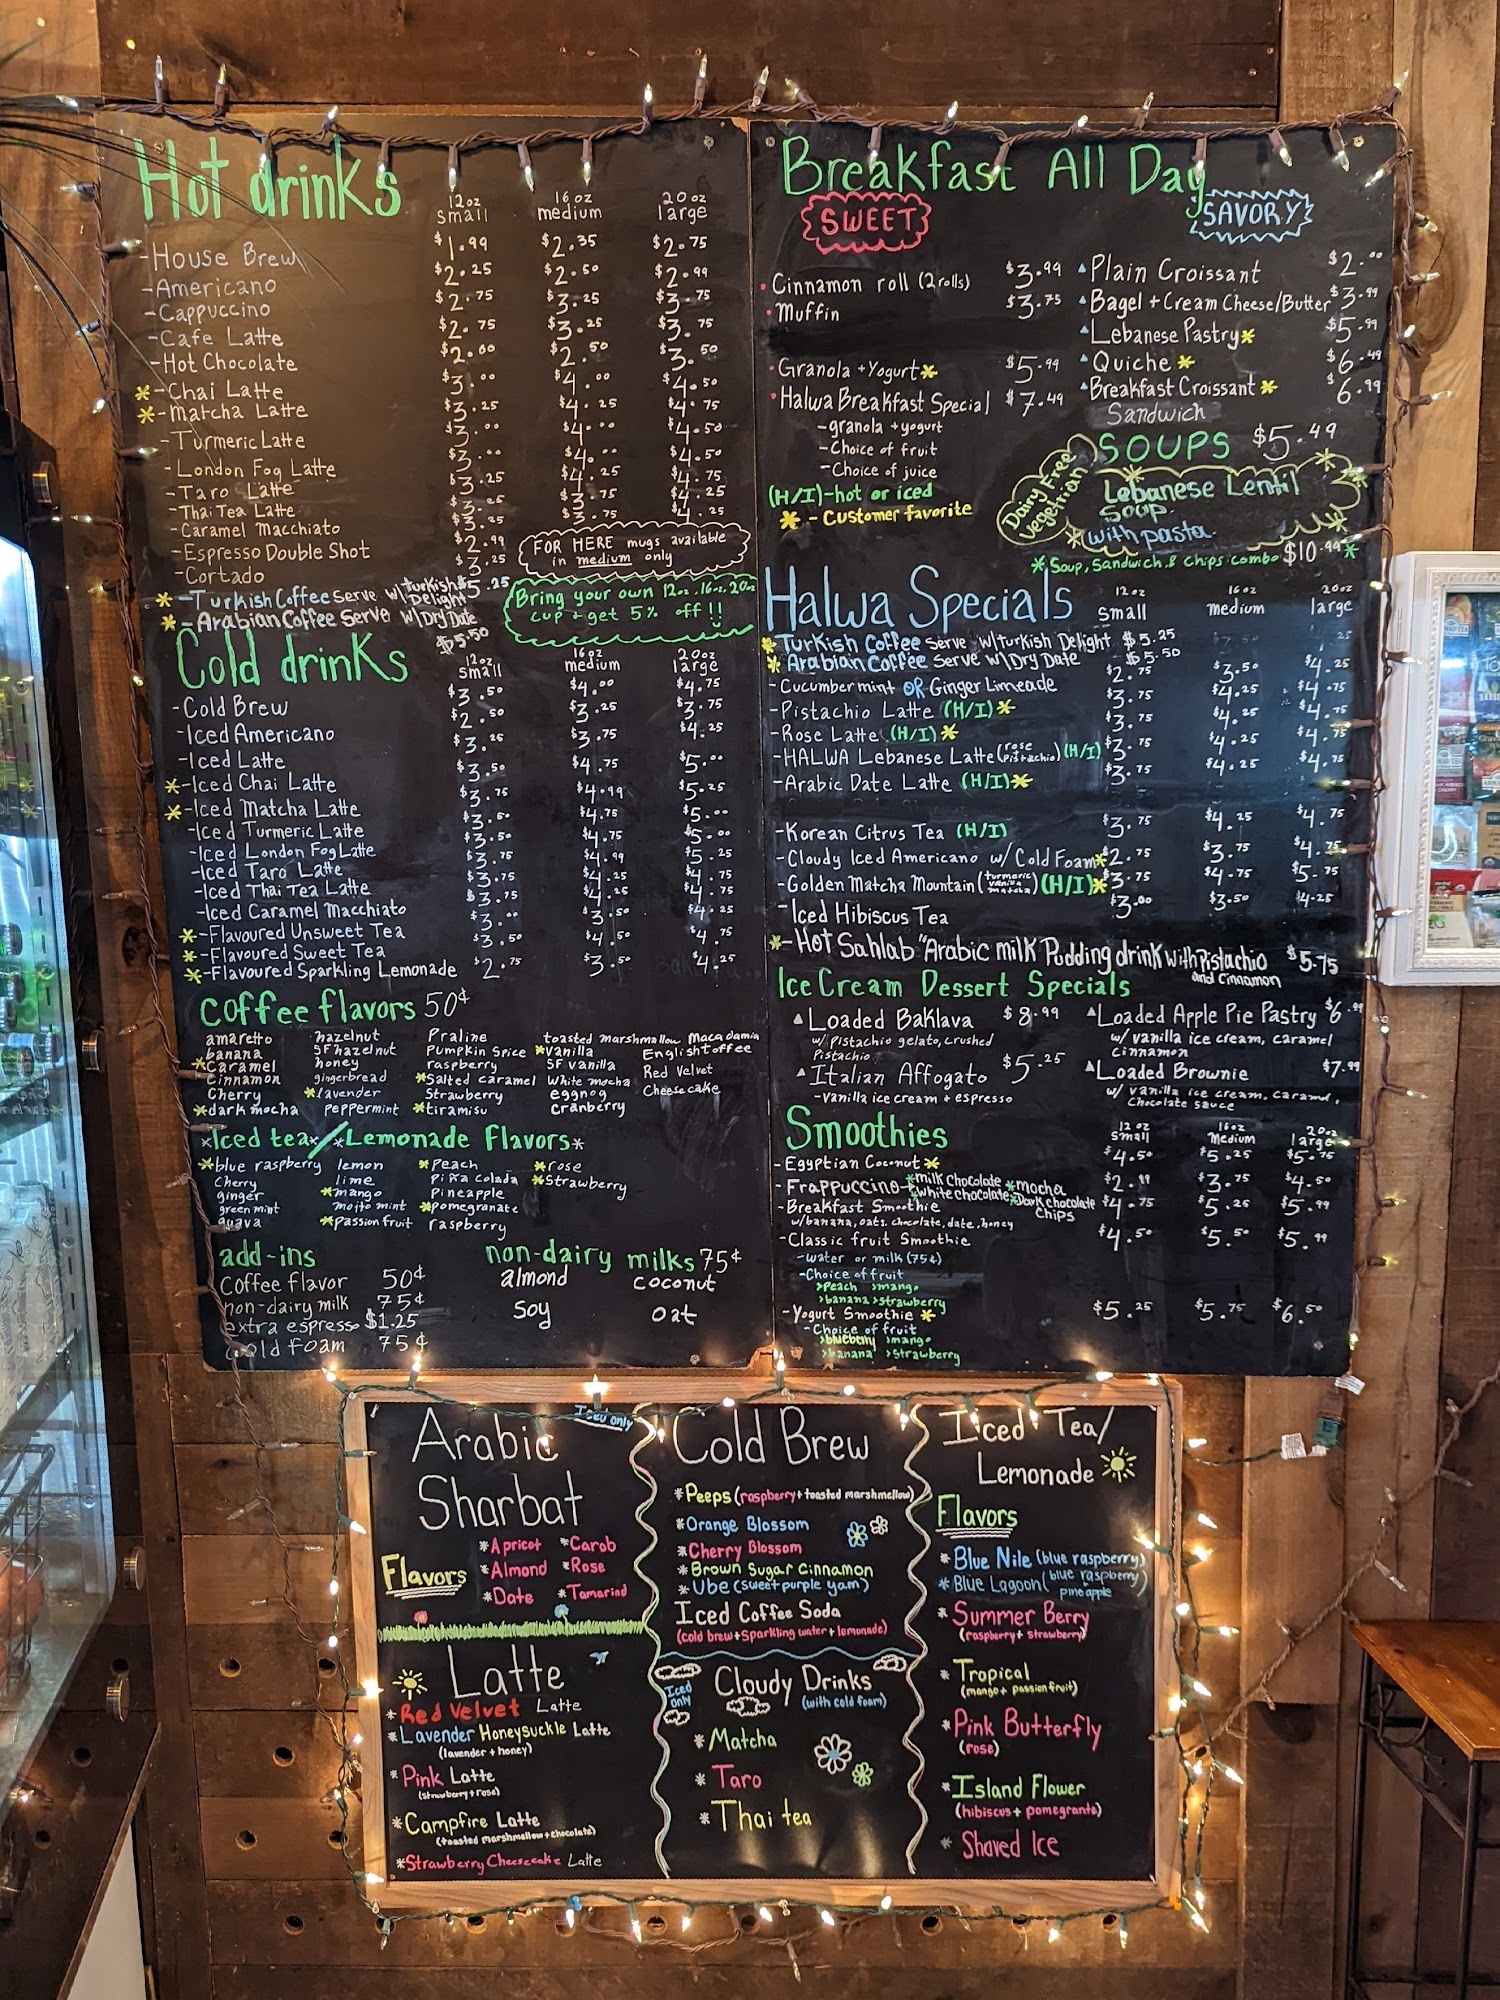 Hot drinks
12oz small
16oz medium
20oz large
-House Brew $1.99 $2.35 $2.75
-Americano $2.25 $2.50 $2.99
-Cappuccino $2.75 $3.25 $3.75
-Cafe Latte $2.75 $3.25 $3.75
-Hot Chocolate $2.00 $2.50 $3.50
*-Chai Latte $3.00 $4.00 $4.50
*-Matcha Latte $3.25 $4.25 $4.75
-Turmeric Latte $3.00 $4.00 $4.50
-London Fog Latte $3.00 $4.00 $4.50
-Taro Latte $3.25 $4.25 $4.75
-Thai Tea Latte $3.25 $3.75 $4.25
-Caramel Macchiato $3.25 $3.75 $4.25
-Espresso Double Shot $2.99
-Cortado $3.25
FOR HERE mugs available
in medium only
*-Turkish Coffee Serve w/ Turkish Delight $5.25
*-Arabian Coffee Serve W/Dry Date
$5.50
Bring your own 12oz, 16oz, 20oz
cup + get 5% off!!
Cold drinks
12oz small
16oz medium
20oz large
-Cold Brew $3.50 $4.00 $4.75
-Iced Americano $2.50 $3.25 $3.75
-Iced Latte $3.25 $3.75 $4.25
*-Iced Chai Latte $3.50 $4.75 $5.00
*-Iced Matcha Latte $3.75 $4.99 $5.25
-Iced Turmeric Latte $3.50 $4.75 $5.00
-Iced London Fog Latte $3.50 $4.75 $5.00
-Iced Taro Latte $3.75 $4.99 $5.25
-Iced Thai Tea Latte $3.75 $4.25 $4.75
-Iced Caramel Macchiato $3.75 $4.25 $4.75
*-Flavoured Unsweet Tea $3.00 $3.50 $4.25
*-Flavoured Sweet Tea $3.50 $4.50 $4.75
*-Flavoured Sparkling Lemonade $2.75 $3.50 $4.25
Coffee flavors 50¢
amaretto hazelnut Praline toasted marshmallow Macadamia
banana SF hazelnut Pumpkin Spice *vanilla English toffee
*Caramel honey raspberry SF vanilla Red Velvet
Cinnamon gingerbread *Salted caramel White mocha Cheesecake
Cherry *lavender Strawberry eggnog
*dark mocha peppermint *tiramisu Cranberry
*Iced tea*/*Lemonade flavors*
*blue raspberry lemon *Peach *rose
Cherry lime Piña Colada *Strawberry
ginger *mango Pineapple
green mint mojito mint *pomegranate
guava *passion fruit raspberry
add-ins
Coffee flavor 50¢
non-dairy milk 75¢
extra espresso $1.25
Cold foam 75¢
non-dairy milks 75¢
almond coconut
Soy oat
Breakfast All Day
SWEET
Cinnamon roll (2 rolls) $3.99
Muffin $3.75
Granola + Yogurt* $5.99
Halwa Breakfast Special $7.49
-granola + yogurt
-Choice of fruit
-Choice of juice
(H/I)-hot or iced
* - Customer favorite
SAVORY
Plain Croissant $2.00
Bagel + Cream Cheese/Butter $3.99
Lebanese Pastry* $5.99
Quiche* $6.49
Breakfast Croissant* $6.99
Sandwich
SOUPS $5.49
Dairy Free
Vegetrian
Lebanese Lentil
Soup
*with pasta
*Soup, Sandwich & Chips combo $10.99*
Halwa Specials
12oz small
16oz medium
20oz large
*Turkish Coffee Serve w/Turkish Delight $5.25
*Arabian Coffee Serve w/Dry Date $5.50
-Cucumber mint OR Ginger Limeade $2.75 $3.50 $4.25
-Pistachio Latte (H/I)* $3.75 $4.25 $4.75
-Rose Latte (H/I)* $3.75 $4.25 $4.75
-HALWA Lebanese Latte (rose pistachio) (H/I) $3.75 $4.25 $4.75
-Arabic Date Latte (H/I)* $3.75 $4.25 $4.75
-Korean Citrus Tea (H/I) $3.75 $4.25 $4.75
-Cloudy Iced Americano w/ Cold Foam* $2.75 $3.75 $4.75
-Golden Matcha Mountain (turmeric vanilla matcha) (H/I)* $3.75 $4.75 $5.75
-Iced Hibiscus Tea $3.00 $3.50 $4.25
*-Hot Sahlab "Arabic milk Pudding drink with Pistachio and Cinnamon $5.75
Ice Cream Dessert Specials
Loaded Baklava $8.99
w/ Pistachio gelato, crushed
Pistachio
Italian Affogato $5.25
-vanilla ice cream + espresso
Loaded Apple Pie Pastry $6.99
w/ vanilla ice cream, caramel
cinnamon
Loaded Brownie $7.99
w/ vanilla ice cream, caramel,
Chocolate sauce
Smoothies
12oz small
16oz Medium
20oz large
-Egyptian Coconut* $4.50 $5.25 $5.75
-Frappuccino *milk chocolate *mocha $2.99 $3.75 $4.50
*White chocolate *Dark chocolate Chips
-Breakfast Smoothie $4.75 $5.25 $5.99
w/banana, oats, chocolate, date, honey
-Classic fruit Smoothie $4.50 $5.50 $5.99
-water or milk (75¢)
-Choice of fruit
>Peach >mango
>banana >strawberry
-Yogurt Smoothie* $5.25 $5.75 $6.50
-Choice of fruit
>blueberry >mango
>banana >strawberry
Arabic
Sharbat
Iced only
Flavors
*Apricot *Carob
*Almond *Rose
*Date *Tamarind
Latte
*Red Velvet Latte
*Lavender Honeysuckle Latte
(lavender + honey)
*Pink Latte
(strawberry + rose)
*Campfire Latte
(toasted marshmallow + chocolate)
*Strawberry Cheesecake Latte
Cold Brew
*Peeps (raspberry + toasted marshmellow)
*Orange Blossom
*Cherry Blossom
*Brown Sugar Cinnamon
*Ube (sweet purple yam)
Iced Coffee Soda
(cold brew + Sparkling water + lemonade)
Iced only
Cloudy Drinks
(with cold foam)
*Matcha
*Taro
*Thai tea
Iced Tea/
Lemonade
Flavors
*Blue Nile (blue raspberry)
*Blue Lagoon (blue raspberry pineapple)
*Summer Berry
(raspberry + strawberry)
*Tropical
(mango + passion fruit)
*Pink Butterfly
(rose)
*Island Flower
(hibiscus + pomegranate)
*Shaved Ice